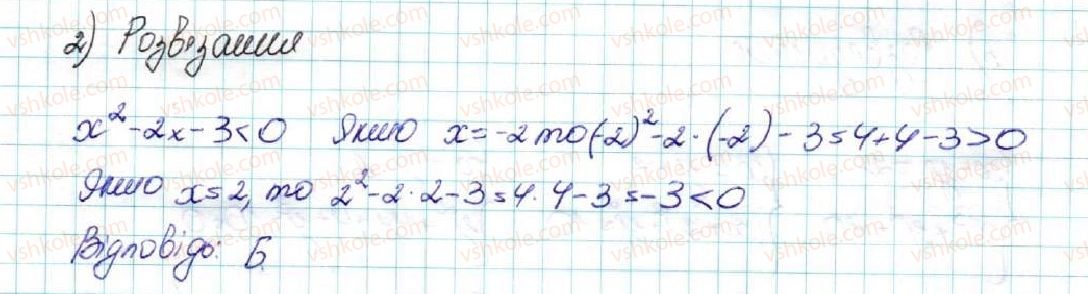 2) Розв'язання
x² - 2x - 3 < 0 Якщо x = -2 то (-2)² - 2 · (-2) - 3 = 4 + 4 - 3 > 0
Якщо x = 2, то 2² - 2 · 2 - 3 = 4 · 4 - 3 = -3 < 0
Відповідь: Б